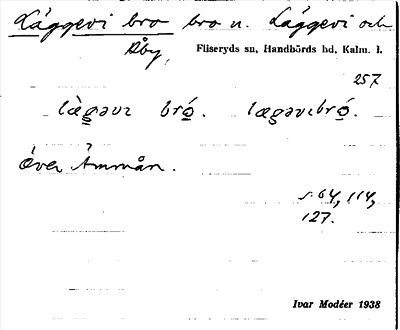 Läggevi bro bro n. Läggevi och
Åby, Fliseryds sn, Handbörds hd, Kalm. l.
257
làgavı bró. lægavıbró.
över Åmmån.
s. 64, 114,
127.
Ivar Modéer 1938